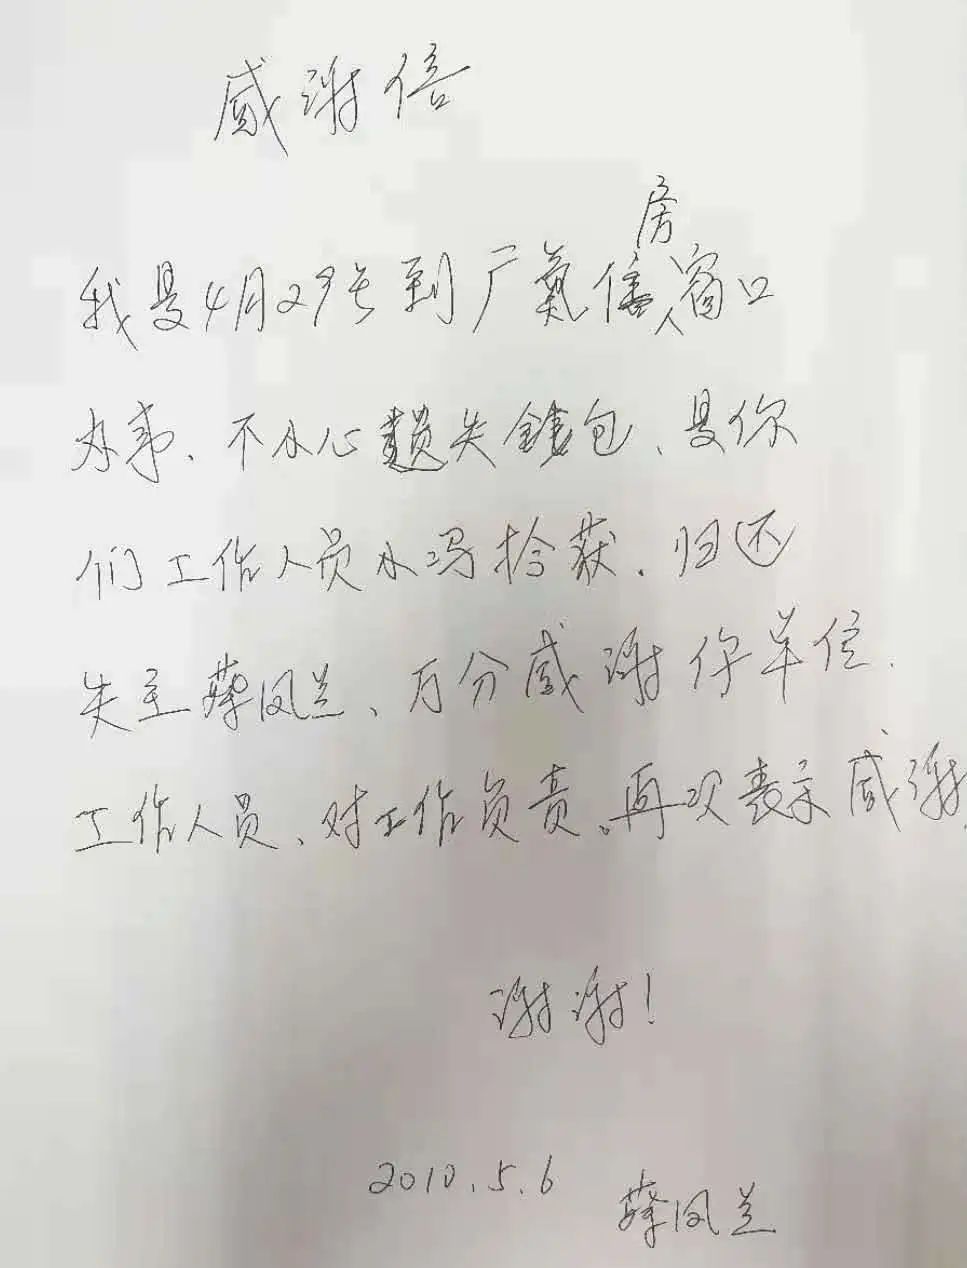 感谢信
我是4月29号到广氮住房窗口
办事、不小心遗失钱包、是你
们工作人员小冯拾获、归还
失主蔡凤兰、万分感谢你单位、
工作人员、对工作负责。再次表示感谢
谢谢!
2010.5.6
蔡凤兰